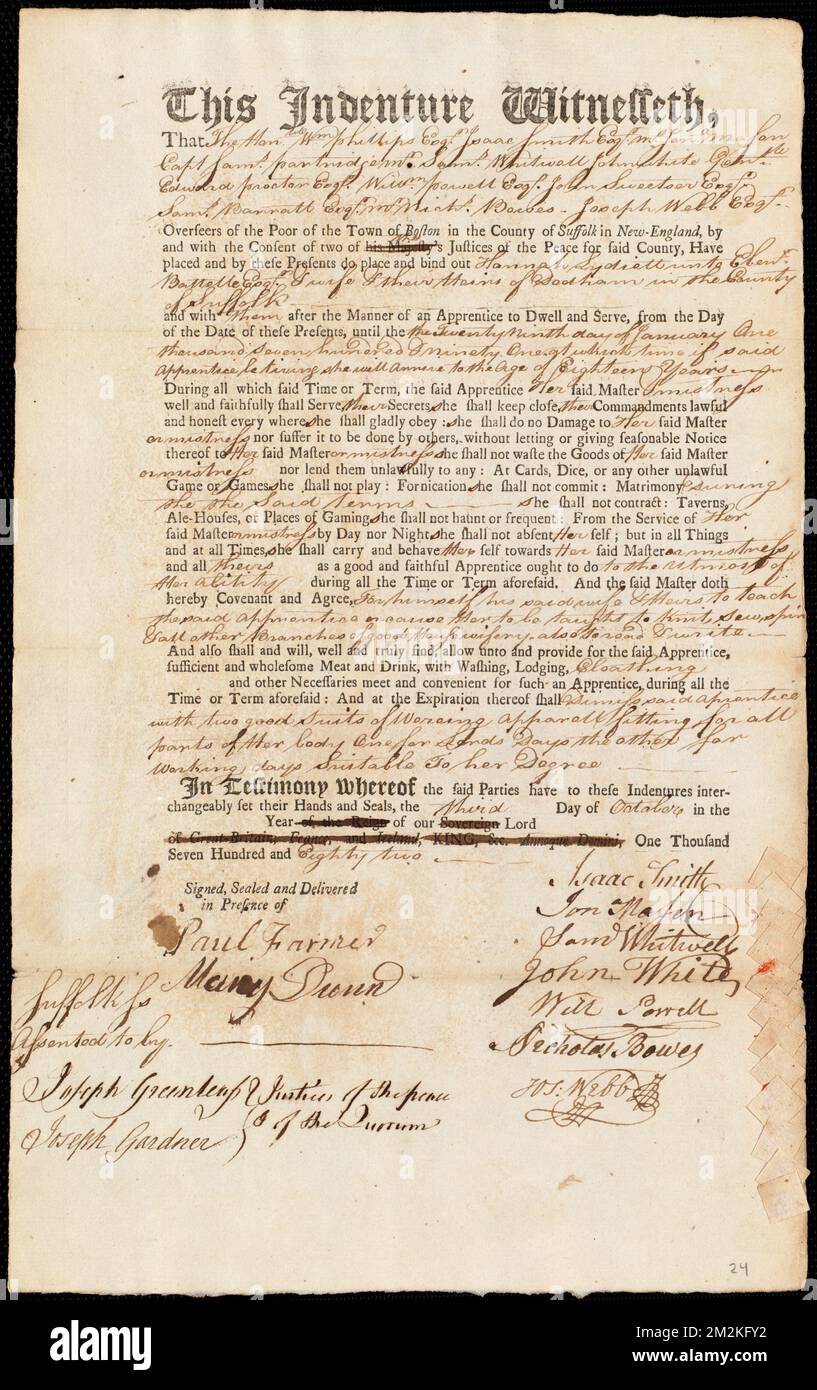 This Indenture Witnesseth,
That The Hon.ble Wm phillips Esqr. Isaac Smith Esqr. mr Jon.a mason
Capt Saml. partridge mr. Saml. Whitwell John white Gentle
Edward procter Esqr. Willm. powell Esqr. John Sweetser Esqr.
Saml. Barratt Esqr. mr Nichs. Bowes - Joseph Webb Esqr. -
Overseers of the Poor of the Town of Boston in the County of Suffolk in New-England, by
and with the Consent of two of his Majesty's Justices of the Peace for said County, Have
placed and by these Presents do place and bind out Hannah Lydiett unto Ebenr.
Battelle Esqr. & wife & their Heirs of Dedham in the County
of Suffolk
and with them after the Manner of an Apprentice to Dwell and Serve, from the Day
of the Date of these Presents, until the the Twenty Ninth day of January One
thousand Seven hundred & ninety One at which time if said
Apprentice be living she will arrive to the Age of Eighteen Years
During all which said Time or Term, the said Apprentice Her said Master & mistress
well and faithfully shall Serve, their Secrets she shall keep close, their Commandments lawful
and honest every where she shall gladly obey : she shall do no Damage to Her said Master
or mistress nor suffer it to be done by others, without letting or giving seasonable Notice
thereof to Her said Master or mistress she shall not waste the Goods of Her said Master
or mistress nor lend them unlawfully to any : At Cards, Dice, or any other unlawful
Game or Games she shall not play : Fornication she shall not commit : Matrimony during
the the Said term she shall not contract : Taverns,
Ale-Houses, or Places of Gaming she shall not haunt or frequent : From the Service of Her
said Master or mistress by Day nor Night she shall not absent Her self ; but in all Things
and at all Times, she shall carry and behave Her self towards Her said Master or mistress
and all theirs as a good and faithful Apprentice ought to do to the Utmost of
Her ability during all the Time or Term aforesaid. And the said Master doth
hereby Covenant and Agree, For himself his said wife & Heirs to teach
the said Apprentice or cause Her to be taught to Knit, Sew, spin
& all other Branches of good Housewifery also to read & write
And also shall and will, well and truly find, allow unto and provide for the said Apprentice,
sufficient and wholesome Meat and Drink, with Washing, Lodging, Cloathing
and other Necessaries meet and convenient for such an Apprentice, during all the
Time or Term aforesaid : And at the Expiration thereof shall Dismiss said Aprentice
with two good Suits of Wereing Apparall fitting for all
parts of Her body One for Lords Days the other for
Working days Suitable To her Degree
In Testimony Whereof the said Parties have to these Indentures inter-
changeably set their Hands and Seals, the third Day of October in the
Year of the Reign of our Sovereign Lord
of Great-Britain, France, and Ireland, KING, &c. Annoque Domini, One Thousand
Seven Hundred and Eighty two
Signed, Sealed and Delivered
in Presence of
Paul Farmer
Mary Dunn
Isaac Smith
Jon Mason
Saml Whitwell
John White
Will Powell
Nicholas Bowes
Jos: Webb
Suffolk Ss
Assented to by.
Joseph Greenleaf } Justices of the peace
Joseph Gardner } & of the Quorum
24
alamy
Image ID: 2M2KFY2
www.alamy.com